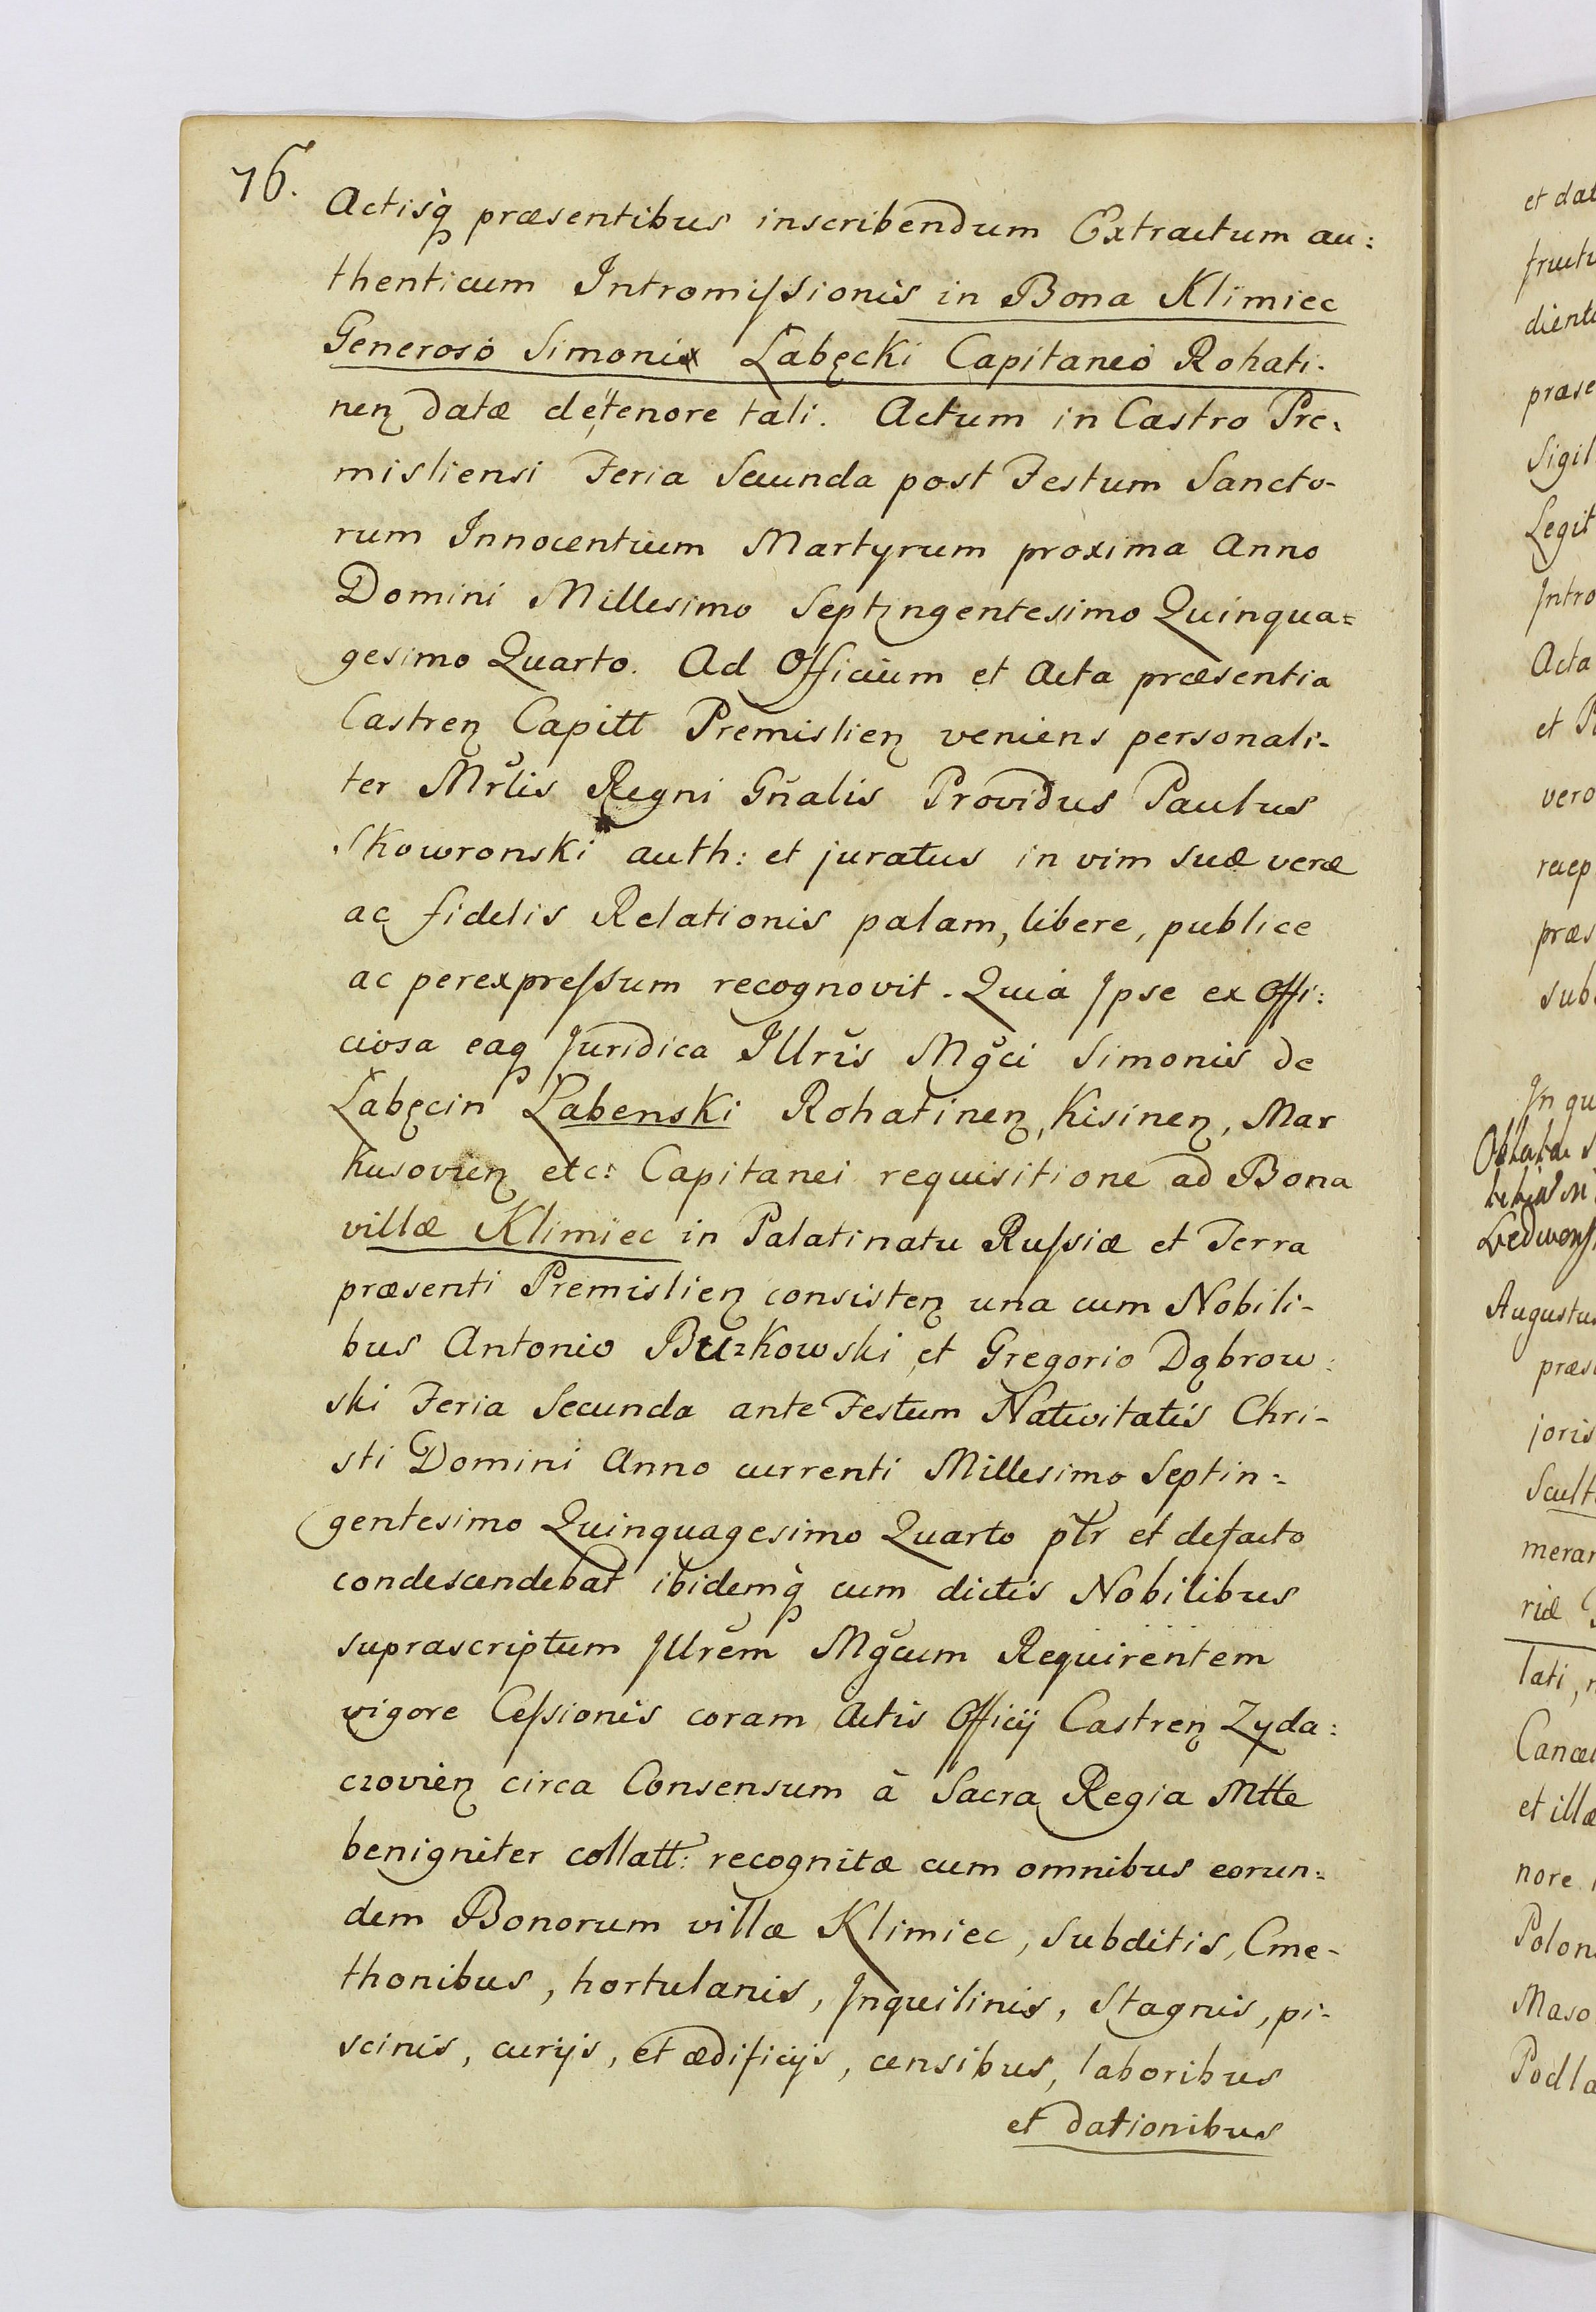 76.
Actisq̀ præsentibus inscribendum Extractum au:
thenticum Intromissionis in Bona Klimiec
Generoso Simoni Łabęcki Capitaneo Rohati-
nen̨ datæ de tenore tali. Actum in Castro Pre-
misliensi Feria Secunda post Festum Sancto-
rum Innocentium Martyrum proxima Anno
Domini Millesimo Septingentesimo Quinqua=
gesimo Quarto. Ad Officium et Acta præsentia
Castren̨ Capitt Premislien̨ veniens personali-
ter Mrlis Regni Gñalis Providus Paulus
Skowronski auth: et juratus in vim suæ veræ
ac fidelis Relationis palam, libere, publice
ac perexpressum recognovit. Quia Ipse ex Offi:
ciosa eaq Juridica Illris Mgci Simonis de
Łabęcin Łabenski Rohatinen̨, Kisinen̨, Mar
kusovien̨ etc: Capitanei requisitione ad Bona
villæ Klimiec in Palatinatu Russiæ et Terra
præsenti Premislien̨ consisten̨ una cum Nobili-
bus Antonio Buzkowski et Gregorio Dąbrow:
ski Feria Secunda ante Festum Nativitatis Chri-
sti Domini Anno currenti Millesimo Septin=
gentesimo Quinquagesimo Quarto ptr et defacto
condescendebat ibidemq̀ cum dictis Nobilibus
suprascriptum Illrem Mgcum Requirentem
vigore Cessionis coram Actis Officij Castren̨ Zyda:
czovien̨ circa Consensum à Sacra Regia Mtte
benigniter collatt: recognitæ cum omnibus eorun=
dem Bonorum villæ Klimiec, Subditis, Cme-
thonibus, hortulanis, Inquilinis, Stagnis, pi-
scinis, curijs, et ædificijs, censibus, laboribus
et dationibus